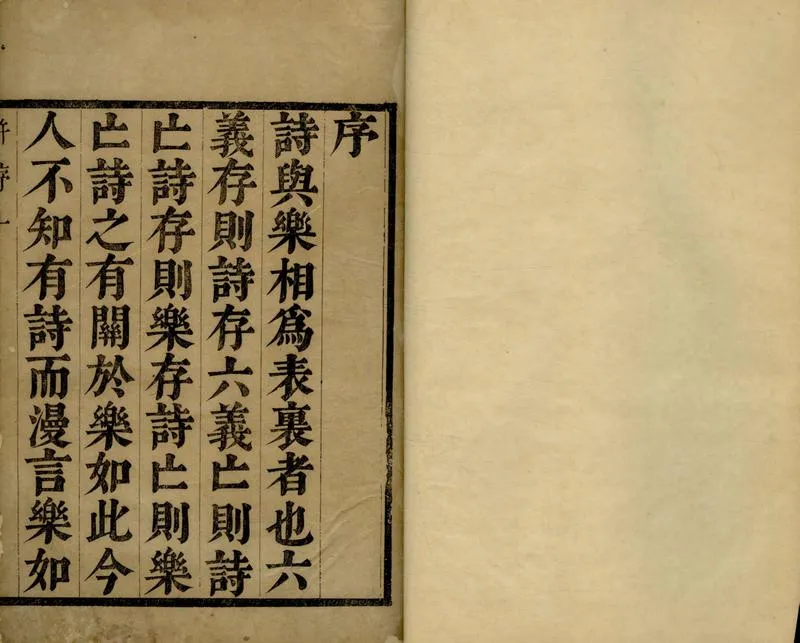 序
詩與樂相爲表裏者也六
義存則詩存六義亡則詩
亡詩存則樂存詩亡則樂
亡詩之有關於樂如此今
人不知有詩而漫言樂如
序一